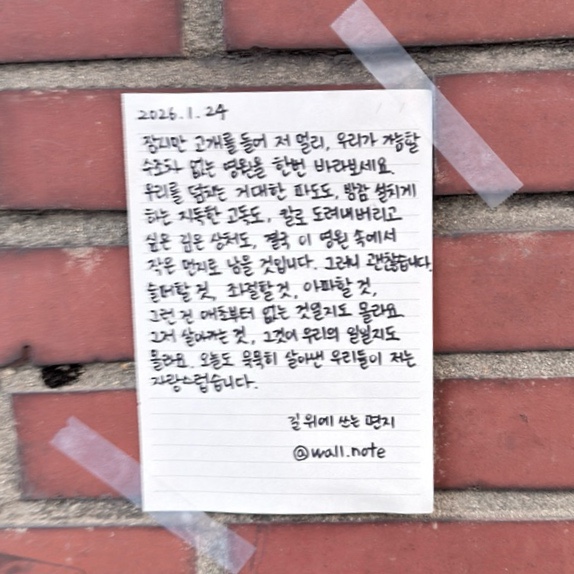 2026.1.24
잠시만 고개를 들어 저 멀리, 우리가 가늠할
수조차 없는 영원을 한번 바라보세요.
우리를 덮치는 거대한 파도도, 밤잠 설치게
하는 지독한 고독도, 칼로 도려내버리고
싶은 깊은 상처도, 결국 이 영원 속에서
작은 먼지로 남을 것입니다. 그러니 괜찮습니다.
슬퍼할 것, 좌절할 것, 아파할 것,
그런 건 애초부터 없는 것일지도 몰라요.
그저 살아가는 것, 그것이 우리의 일일지도
몰라요. 오늘도 묵묵히 살아낸 우리들이 저는
자랑스럽습니다.
길 위에 쓰는 편지
@wall.note